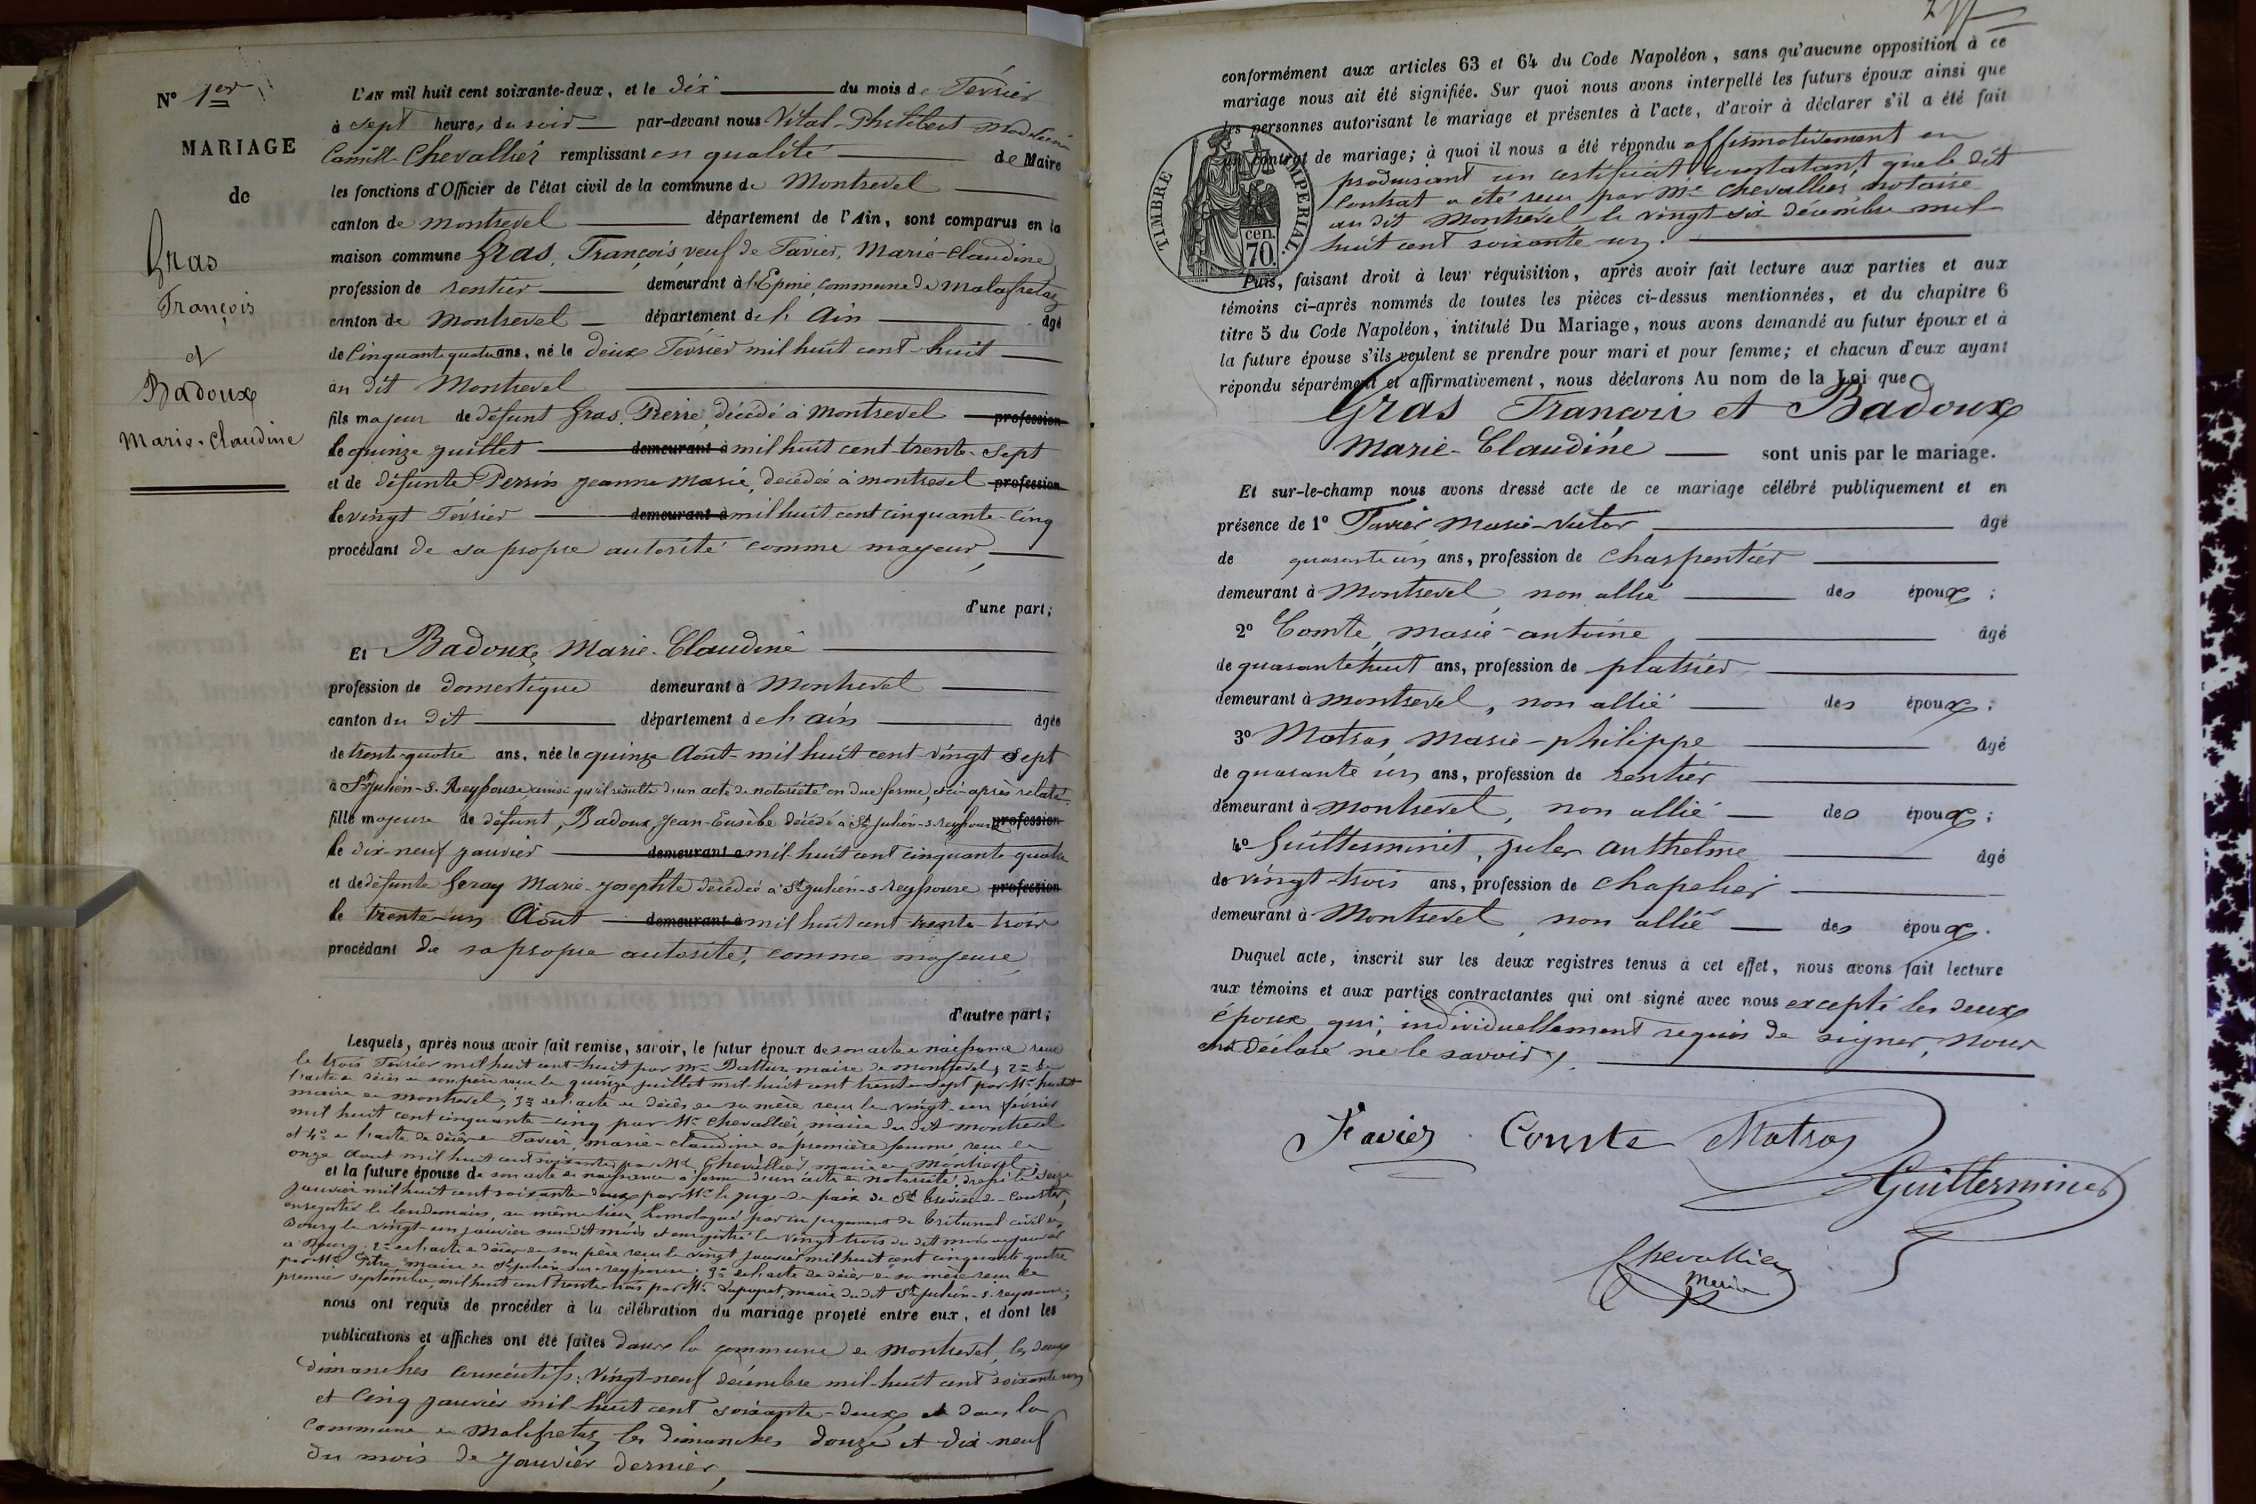 N° 1er
MARIAGE
de
Gras
François
et
Badoux
Marie-Claudine
L'AN mil huit cent soixante-deux, et le dix du mois de Février
à sept heures du soir par-devant nous Vital-Philibert Madeleine
Camille Chevallier remplissant en qualité de Maire
les fonctions d'Officier de l'état civil de la commune de Montrevel
canton de Montrevel département de l'Ain, sont comparus en la
maison commune Gras, François, veuf de Favier, Marie-Claudine,
profession de rentier demeurant à l'Epine, commune de Malafretaz
canton de Montrevel département de l'Ain âgé
de Cinquante quatre ans, né le deux Février mil huit cent huit
au dit Montrevel
fils majeur de défunt Gras, Pierre, décédé à Montrevel profession
le quinze juillet demeurant à mil huit cent trente-sept
et de défunte Perrin Jeanne Marie, décédée à Montrevel profession
le vingt Février demeurant à mil huit cent cinquante-cinq
procédant de sa propre autorité comme majeur,
d'une part;
Et Badoux, Marie-Claudine
profession de domestique demeurant à Montrevel
canton du dit département de l'ain âgée
de trente-quatre ans, née le quinze Août mil huit cent vingt sept
à St Julien-s-Reyssouze ainsi qu'il résulte d'un acte de notoriété en due forme, ci-après relaté
fille majeure de défunt, Badoux, Jean-Eusèbe décédé à St Julien-s-reyssouze profession
le dix-neuf janvier demeurant à mil huit cent cinquante quatre
et de défunte Geray Marie-Josephte décédée à St Julien-s-reyssouze profession
le trente-un Août demeurant à mil huit cent trente-trois
procédant de sa propre autorité, comme majeure,
d'autre part;
Lesquels, après nous avoir fait remise, savoir, le futur époux de son acte de naissance reçu
le trois Février mil huit cent-huit par Mr maire de Montrevel; 2° de
l'acte de décès de son père reçu le quinze juillet mil huit cent trente-sept par Mr
maire de Montrevel; 3° de l'acte de décès de sa mère reçu le vingt-un février
mil huit cent cinquante-cinq par Mr Chevallier, maire du dit Montrevel
et 4° de l'acte de décès de Favier, Marie-Claudine sa première femme, reçu le
onze Août mil huit cent soixante par Mr Chevallier, maire de Montrevel;
et la future épouse de son acte de naissance en forme d'un acte de notoriété, dressé le seize
janvier mil huit cent soixante-deux par Mr le juge de paix de St Trivier-de-Courtes,
enregistré le lendemain, au même lieu, homologué par un jugement du tribunal civil de
Bourg le vingt-un janvier susdit mois et enregistré le vingt trois du dit mois
à Bourg; 2° de l'acte de décès de son père reçu le vingt janvier mil huit cent cinquante quatre
par Mr maire de St Julien-sur-reyssouze; 3° de l'acte de décès de sa mère reçu le
premier septembre mil huit cent trente-trois par Mr maire du dit St Julien-s-reyssouze;
nous ont requis de procéder à la célébration du mariage projeté entre eux, et dont les
publications et affiches ont été faites dans la commune de Montrevel, les deux
dimanches consécutifs: vingt-neuf décembre mil-huit cent soixante un
et cinq janvier mil-huit cent soixante-deux et dans la
commune de Malafretaz, les dimanches douze et dix-neuf
du mois de Janvier dernier,
conformément aux articles 63 et 64 du Code Napoléon, sans qu'aucune opposition à ce
mariage nous ait été signifiée. Sur quoi nous avons interpellé les futurs époux ainsi que
les personnes autorisant le mariage et présentes à l'acte, d'avoir à déclarer s'il a été fait
un contrat de mariage; à quoi il nous a été répondu affirmativement en
produisant un certificat constatant que le dit
Contrat a été reçu par Me Chevallier, notaire
au dit Montrevel, le vingt six décembre mil
huit cent soixante-un.
TIMBRE IMPERIAL.
cen.
70.
Puis, faisant droit à leur réquisition, après avoir fait lecture aux parties et aux
témoins ci-après nommés de toutes les pièces ci-dessus mentionnées, et du chapitre 6
titre 5 du Code Napoléon, intitulé Du Mariage, nous avons demandé au futur époux et à
la future épouse s'ils veulent se prendre pour mari et pour femme; et chacun d'eux ayant
répondu séparément et affirmativement, nous déclarons Au nom de la Loi que
Gras François et Badoux
Marie-Claudine sont unis par le mariage.
Et sur-le-champ nous avons dressé acte de ce mariage célébré publiquement et en
présence de 1° Favier Marie-Victor âgé
de quarante un ans, profession de charpentier
demeurant à Montrevel, non allié des époux;
2° Comte, Marie-Antoine âgé
de quarante huit ans, profession de platrier
demeurant à Montrevel, non allié des époux;
3° Matras, Marie-philippe âgé
de quarante un ans, profession de rentier
demeurant à Montrevel, non allié des époux;
4° Guillerminet, Jules Anthelme âgé
de vingt-trois ans, profession de chapelier
demeurant à Montrevel, non allié des époux.
Duquel acte, inscrit sur les deux registres tenus à cet effet, nous avons fait lecture
aux témoins et aux parties contractantes qui ont signé avec nous excepté les deux
époux qui, individuellement requis de signer, nous
ont déclaré ne le savoir.
Favier Comte Matras
Guillerminet
Chevallier
Maire